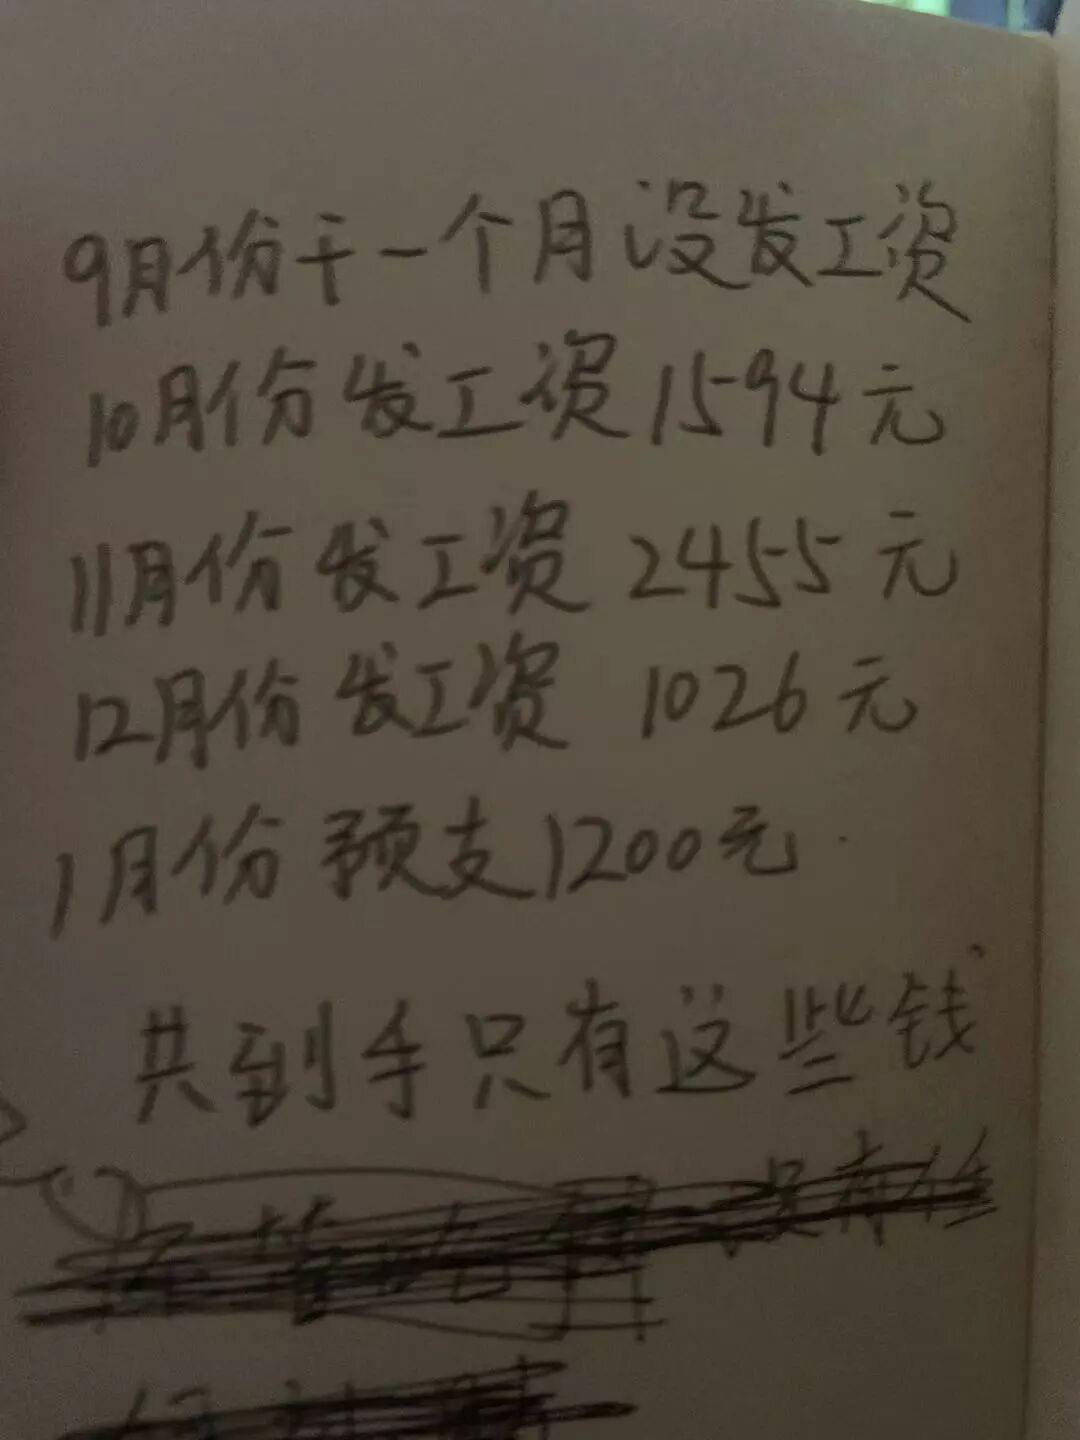 9月份干一个月没发工资
10月份发工资1594元
11月份发工资 2455元
12月份发工资 1026元
1月份预支1200元
共到手只有这些钱
没有任